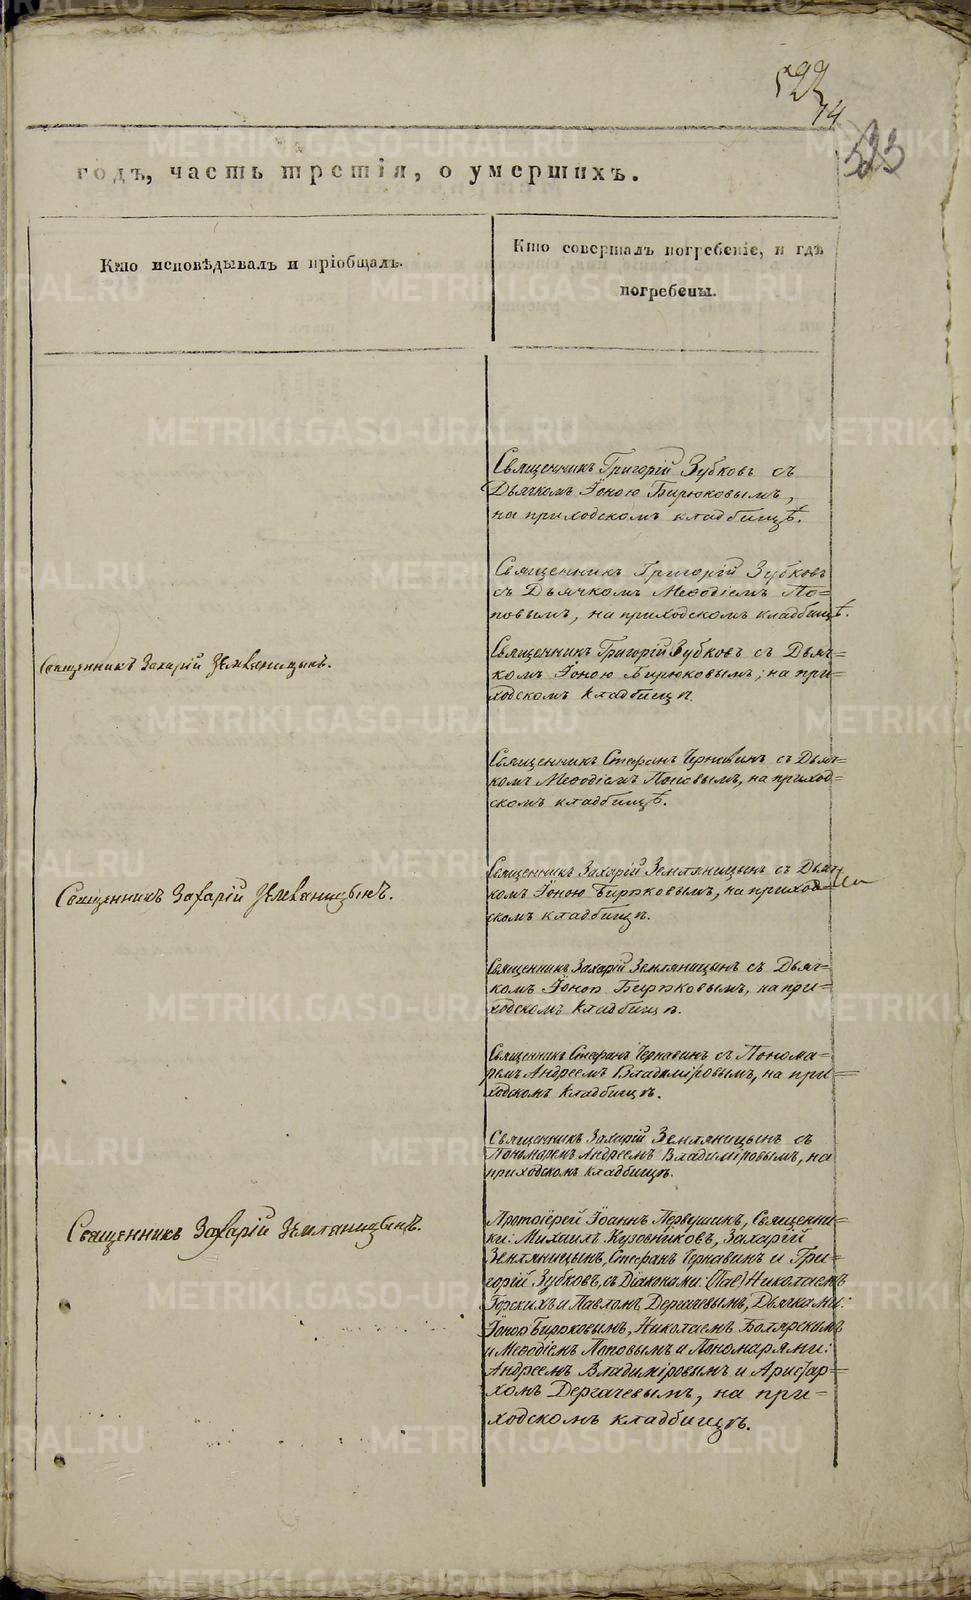 522
74
523
годъ, часть третія, о умершихъ.
Кто исповѣдывалъ и пріобщалъ.
Кто совершалъ погребеніе, и гдѣ
погребены.
Священникъ Григорій Зубковъ съ
Дьячкомъ Іоною Бирюковымъ,
на приходскомъ кладбищѣ.
Священникъ Григорій Зубковъ
съ Дьячкомъ Меѳодіемъ По=
повымъ, на приходскомъ кладбищѣ.
Священникъ Захарій Земляницынъ.
Священникъ Григорій Зубковъ съ Дьяч=
комъ Іоною Бирюковымъ, на при=
ходскомъ кладбищѣ.
Священникъ Стефанъ Чернавинъ съ Дьяч=
комъ Меѳодіемъ Поповымъ, на приход=
скомъ кладбищѣ.
Священникъ Захарій Земляницынъ.
Священникъ Захарій Земляницынъ съ Дьяч=
комъ Іоною Бирюковымъ, на приход=
скомъ кладбищѣ.
Священникъ Захарій Земляницынъ съ Дьяч=
комъ Іоною Бирюковымъ, на при=
ходскомъ кладбищѣ.
Священникъ Стефанъ Чернавинъ съ Понома=
ремъ Андреемъ Владиміровымъ, на при=
ходскомъ кладбищѣ.
Священникъ Захарій Земляницынъ съ
Пономаремъ Андреемъ Владиміровымъ, на
приходскомъ кладбищѣ.
Священникъ Захарій Земляницынъ.
Протоіерей Іоаннъ Первушинъ, Священни=
ки: Михаилъ Кузовниковъ, Захарій
Земляницынъ, Стефанъ Чернавинъ и Гри=
горій Зубковъ, съ Діаконами: Николаемъ
Горскихъ и Павломъ Дергачевымъ, Дьячками:
Іоною Бирюковымъ, Николаемъ Боярскимъ
и Меѳодіемъ Поповымъ и Пономарями:
Андреемъ Владиміровымъ и Аристар=
хомъ Дергачевымъ, на при=
ходскомъ кладбищѣ.
METRIKI.GASO-URAL.RU